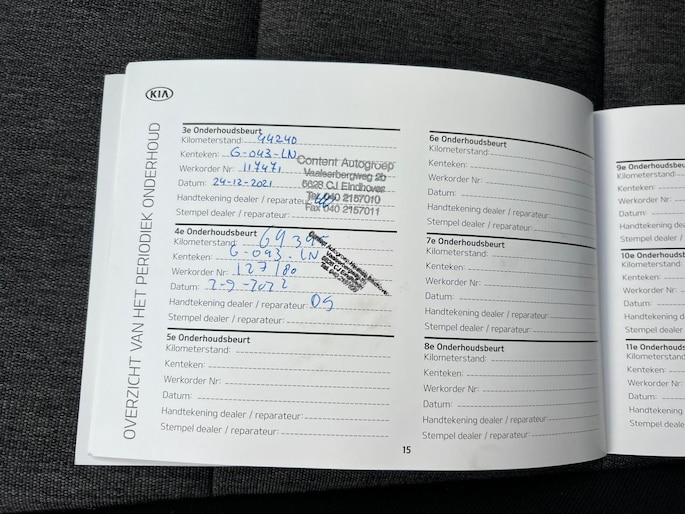 KIA
OVERZICHT VAN HET PERIODIEK ONDERHOUD
3e Onderhoudsbeurt
Kilometerstand: 44240
Kenteken: G-043-LN
Werkorder Nr: 117471
Datum: 24-12-2021
Handtekening dealer / reparateur:
Stempel dealer / reparateur:
Content Autogroep
Vaalserbergweg 2b
5628 CJ Eindhoven
Tel. 040 2157010
Fax 040 2157011
4e Onderhoudsbeurt
Kilometerstand: 69395
Kenteken: G-093-LN
Werkorder Nr: 127180
Datum: 2-9-2022
Handtekening dealer / reparateur: DS
Stempel dealer / reparateur:
5e Onderhoudsbeurt
Kilometerstand:
Kenteken:
Werkorder Nr:
Datum:
Handtekening dealer / reparateur:
Stempel dealer / reparateur:
6e Onderhoudsbeurt
Kilometerstand:
Kenteken:
Werkorder Nr:
Datum:
Handtekening dealer / reparateur:
Stempel dealer / reparateur:
7e Onderhoudsbeurt
Kilometerstand:
Kenteken:
Werkorder Nr:
Datum:
Handtekening dealer / reparateur:
Stempel dealer / reparateur:
8e Onderhoudsbeurt
Kilometerstand:
Kenteken:
Werkorder Nr:
Datum:
Handtekening dealer / reparateur:
Stempel dealer / reparateur:
15
9e Onderhoudsbeu
Kilometerstand:
Kenteken:
Werkorder Nr:
Datum:
Handtekening dea
Stempel dealer /
10e Onderhouds
Kilometerstand:
Kenteken:
Werkorder Nr:
Datum:
Handtekening d
Stempel dealer
11e Onderhouds
Kilometerstand
Kenteken:
Werkorder Nr:
Datum:
Handtekening
Stempel deale